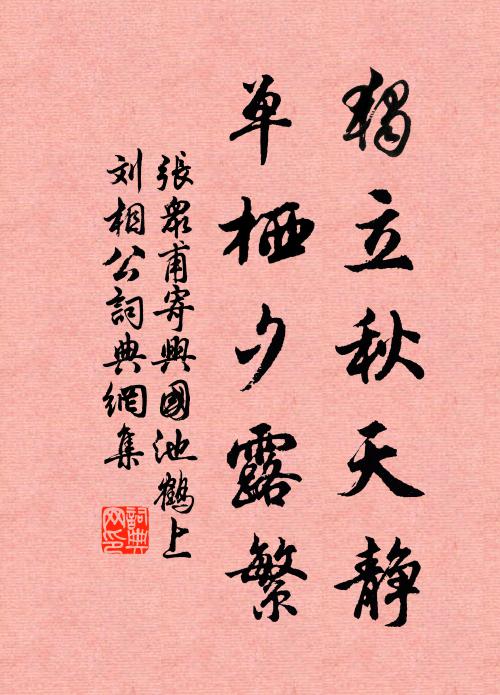 獨立秋天静
单栖夕露繁
張眾甫寄興國池鶴上
刘相公詞典網集
詞典
网印